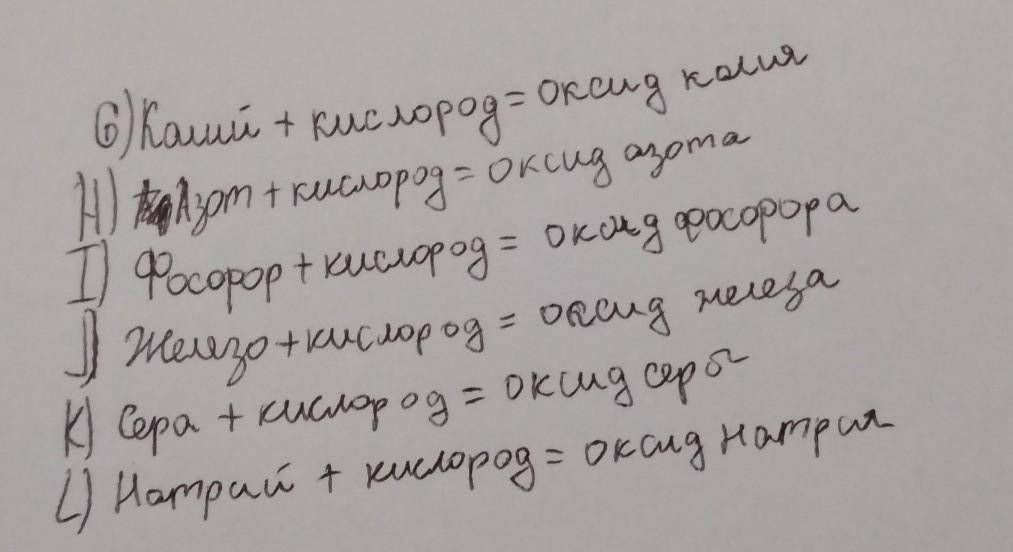 G) Калий + кислород = оксид калия
H) Азот + кислород = оксид азота
I) Фосфор + кислород = оксид фосфора
J) Железо + кислород = оксид железа
K) Сера + кислород = оксид серы
L) Натрий + кислород = оксид натрия